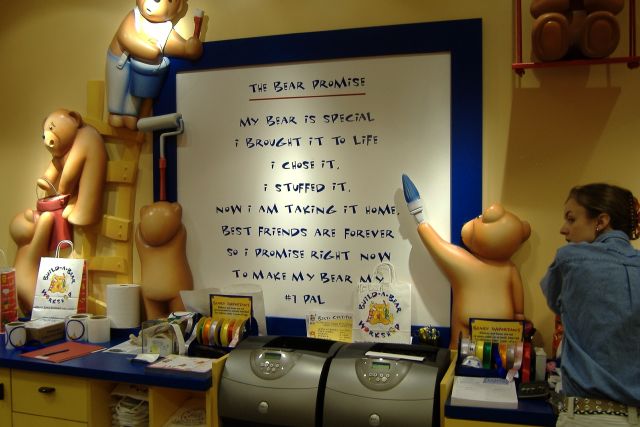 THE BEAR PROMISE
MY BEAR IS SPECIAL
I BROUGHT IT TO LIFE
I CHOSE IT.
I STUFFED IT.
NOW I AM TAKING IT HOME.
BEST FRIENDS ARE FOREVER
SO I PROMISE RIGHT NOW
TO MAKE MY BEAR MY
#1 PAL
BUILD-A-BEAR
WORKSHOP
BUILD-A-BEAR
WORKSHOP